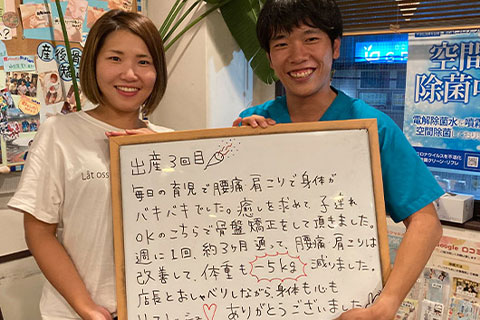 産後
Låt oss
空間
除菌
電解除菌水
空間除菌
コロナウイルスを不活化
出産3回目
毎日の育児で腰痛肩こりで身体が
バキバキでした。癒しを求めて、子連れ
OKのこちらで骨盤矯正をして頂きました。
週に1回、約3ヶ月通って、腰痛肩こりは
改善して、体重も -5kg 減りました。
店長とおしゃべりしながら、身体も心も
ありがとうございました
Google 口コミ